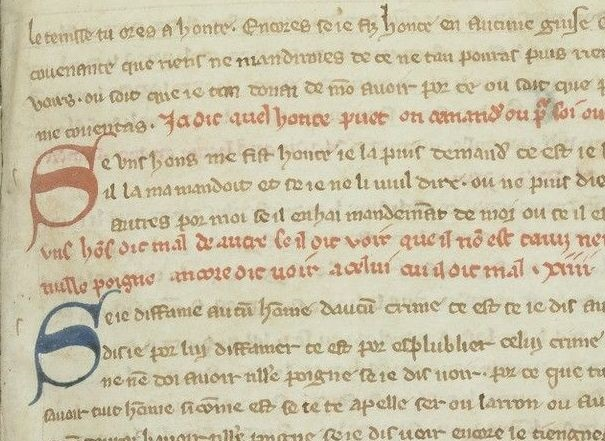 le tenisse tu ores a honte. Encores se ie faz honte en aucune guise
couenante que riens ne mandiroies de ce ne tan pouras puis rien
uoirs. ou soit que ie tan donai de mō auoir por ce ou soit que
me couentas. Ja dit quel honte puet on demander ou pª soi ou
Se uns hons me fist honte ie la puis demandr ce est ie
il la ma mandoit et se ie ne li uuil dire. ou ne puis die
autres por moi se il en hai mandemāt de moi ou ce il
uns hōs dit mal de autre se il dit uoir que il nō est tenuz ne
nulle poigne ancore dit uoir a celui cui il dit mal. xiiii
Se ie diffame aucū hōme daucū crime ce est se ie dis au
disie por lui diffamer ce est por esplublier celui crime
ne nē doi auoir nlle poigne se ie dis uoir. por ce que tu
sauoir tuit hōme si cōme est se ie te apelle ser ou larron ou
auoir nlle poigne se ie dis uoir encore le tiengne